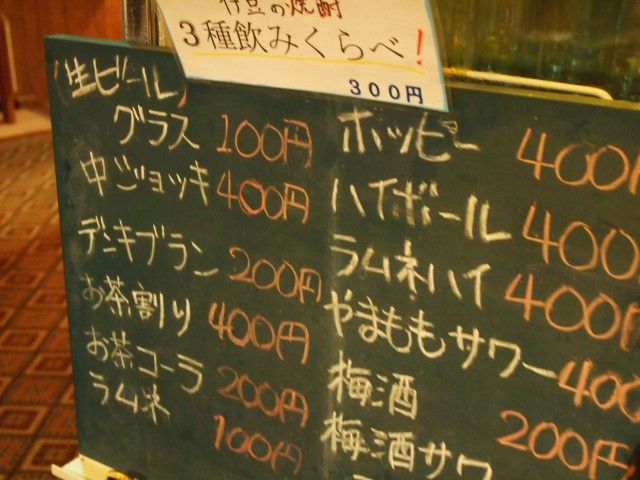 伊豆の焼酎
3種飲みくらべ!
300円
(生ビール)
グラス 100円
中ジョッキ 400円
デンキブラン 200円
お茶割り 400円
お茶コーラ 200円
ラムネ 100円
ホッピー 400円
ハイボール 400
ラムネハイ 400
やまももサワー 400
梅酒 200円
梅酒サワ